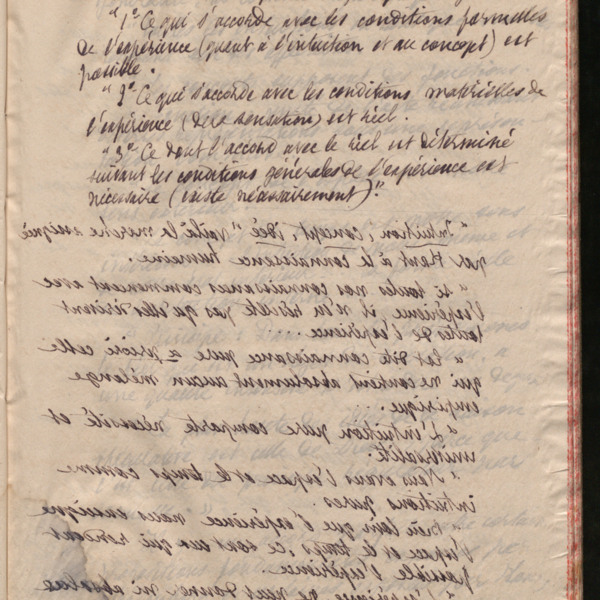 "1º Ce qui s'accorde avec les conditions formelles
de l'expérience (quant à l'intuition et au concept) est
possible.
"2º Ce qui s'accorde avec les conditions matérielles de
l'expérience (de la sensation) est réel.
"3º Ce dont l'accord avec le réel est déterminé
suivant les conditions générales de l'expérience est
nécessaire (existe nécessairement)".
"Intuition, concept, idée" voilà la marche assignée
par Kant à la connaissance humaine.
"Si toutes nos connaissances commencent avec
l'expérience il n'en résulte pas qu'elles dérivent
toutes de l'expérience....
"Est dite connaissance pure a priori celle
qui ne contient absolument aucun mélange
empirique.
"L'intuition pure comporte nécessité et
universalité.
"Nous avons l'espace et le temps comme
intuitions pures.
"Bien loin que l'expérience nous enseigne
l'espace et le temps, ce sont eux qui rendent
possible l'expérience.
"L'expérience ne peut donner ni absolue